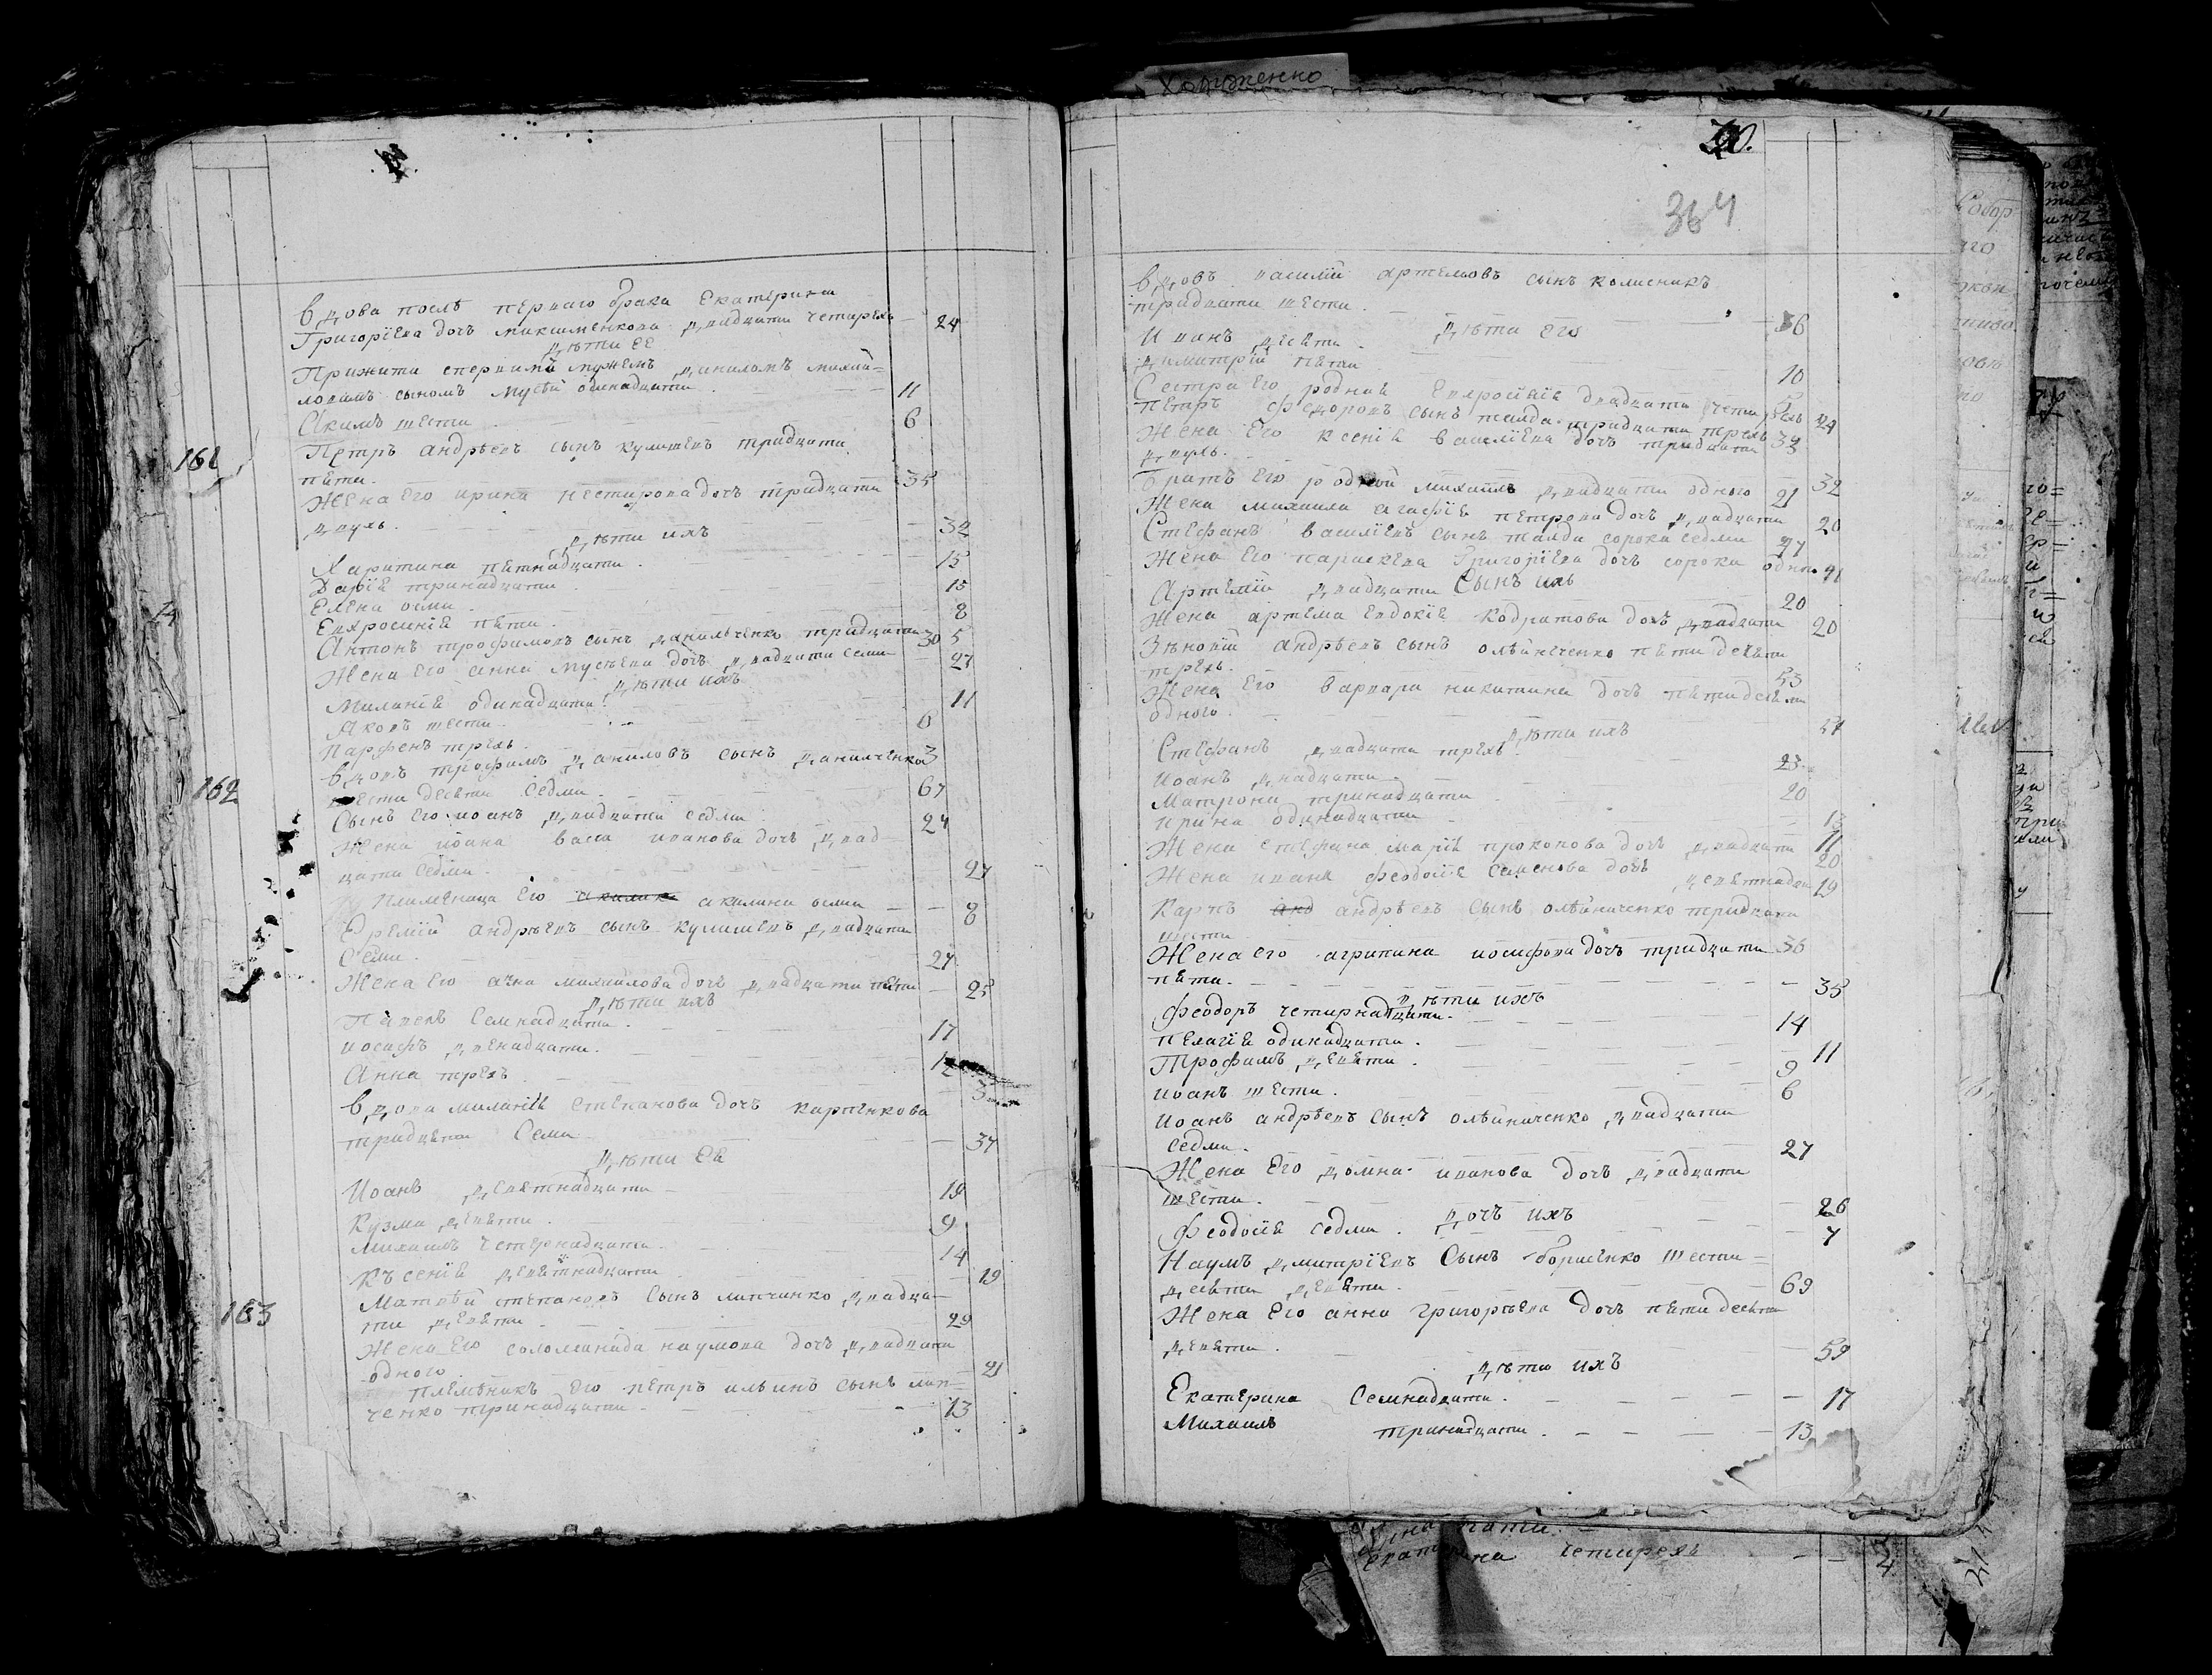 Вдова послѣ перваго брака Екатерина
Григоріева дочъ двадцати четирехъ — 24
дѣти ее
Прижити спервимъ мужемъ даниломъ михай=
ловимъ сыномъ мусѣй одинадцати . 11
Акимъ шести 6
161 Петръ андрѣевъ сынъ тридцати
пяти. 35
Жена его ирина нестирова дочъ тридцати
двухъ. 32
дѣти ихъ
Харитина пятнадцати . 15
Дарія тринадцати .
Елена осми . 8
Евхросинія пяти . 5
Антонъ трофимовъ сынъ данилченко тридцати 30
Жена его анна мусѣева дочъ двадцати семи 27
дѣти ихъ
Миланія одинадцати . 11
Яковъ шести . 6
Парфенъ трехъ . 3
162 вдовъ трофимъ даниловъ сынъ данилченко
шести десяти седми . 67
Сынъ его иоанъ двадцати седми .
Жена иоана васа иванова дочъ двад
цати седми . 27
племѣница его акилина осми — — 8
Еремій андрѣевъ сынъ двадцати
Семи . 27
Жена его анна михаилова дочъ двадцати пяти — 25
дѣти ихъ
Павелъ Семнадцати . 17
иосифъ двенадцати. 12
Анна трехъ . 3
вдова миланія степанова дочъ карпенкова
тридцяти Семи — 37
дѣти ее
Иоанъ девятнадцати — 19
Кузма девяти . 9
михаилъ четернадцати . 14
Къ сенія девятнадцати — 19
163 Матвѣй степановъ Сынъ липчинко двадца
ти девяти . 29
Жена его соломанида наумова дочъ двадцати
одного 21
племѣникъ его петръ ильинъ сынъ лип=
ченко тринадцати . 13
364
вдовъ василій артемовъ сынъ колисникъ
тридцати шести . 36
дѣти его
Иванъ десяти . 10
димитрій пяти 5
Сестра его родная Евхросинія двадцати четирехъ 24
петръ федоровъ сынъ тридцати трехъ 33
Жена его ксенія василіева дочъ тридцати
двухъ . 32
Братъ его родной михаилъ двадцати одного 21
Жена михаила агафія петрова дочъ двадцати 20
Стефанъ василіевъ сынъ сорока седми 47
Жена его параскева Григоріева дочъ сорока одного 41
Сынъ ихъ
Артемій двадцати 20
Жена артема евдокія кодратова дочъ двадцати 20
Зѣновій андрѣевъ сынъ олѣйниченко пяти десяти
трехъ . 53
Жена его варвара никитина дочъ пятидесяти
одного . 51
дѣти ихъ
Стефанъ двадцати трехъ . 23
Иоанъ двадцати . 20
Матрона тринадцати . 13
ирина одинадцати . 11
Жена стефана марія прокопова дочъ двадцати 20
Жена ивана феодосія семенова дочъ девятнадца 19
Карпъ анд андрѣевъ сынъ олѣйниченко тридцати
шести 36
Жена его агрипина иосифова дочъ тридцати
пяти . 35
дѣти ихъ
феодоръ четирнадцати . 14
пелагія одинадцати . 11
Трофимъ девяти . 9
иоанъ шести . 6
иоанъ андрѣевъ сынъ олѣйниченко двадцати
седми . 27
Жена его домна иванова дочъ двадцати
шести . 26
дочъ ихъ
феодосія седми . 7
Наумъ дмитріевъ Сынъ борисенко шести=
десяти девяти . 69
Жена его анна григорѣева дочъ пяти десяти
девяти . 59
дѣти ихъ
Екатерина Семнадцати . 17
Михаилъ тринадцати . 13
пяти .
четирехъ